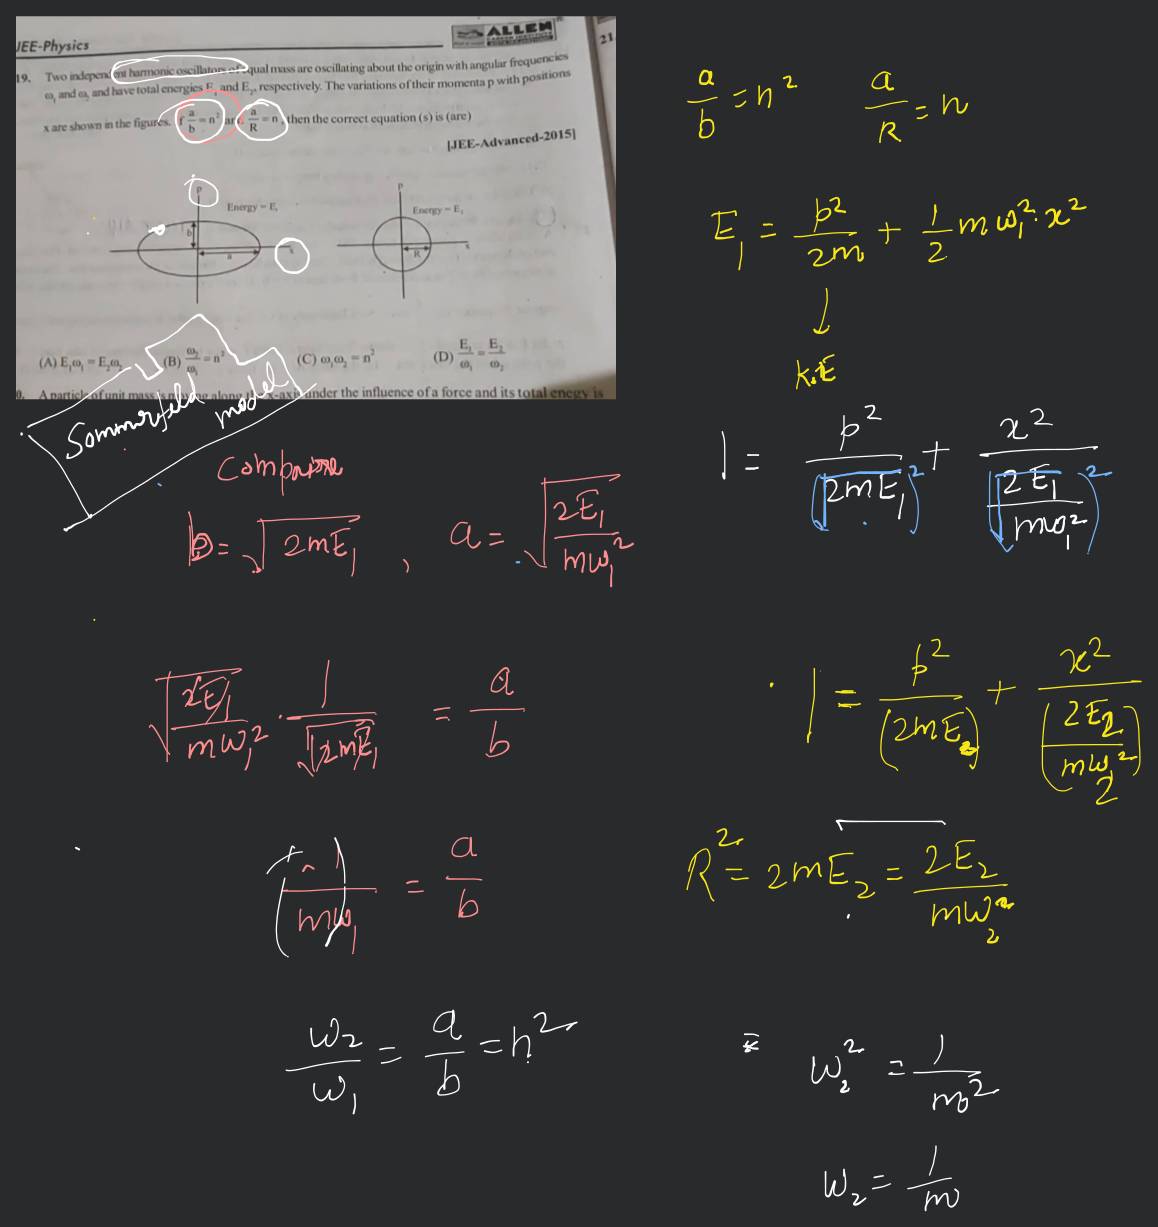 JEE-Physics
ALLEN
21
19. Two independent harmonic oscillators of equal mass are oscillating about the origin with angular frequencies
ω₁ and ω₂ and have total energies E₁ and E₂, respectively. The variations of their momenta p with positions
x are shown in the figures. If a/b = n² and a/R = n, then the correct equation (s) is (are)
[JEE-Advanced-2015]
p
Energy = E₁
b
a
p
Energy = E₂
R
x
(A) E₁ω₁ = E₂ω₂ (B) ω₂/ω₁ = n² (C) ω₁ω₂ = n² (D) E₁/ω₁ = E₂/ω₂
A particle of unit mass is moving along the x-axis under the influence of a force and its total energy is
Sommerfeld model
a/b = n² a/R = n
E₁ = p²/2m + 1/2 mω₁²·x²
↓
K.E
1 = p²/(√2mE₁)² + x²/(√(2E₁/mω₁²))²
Compare
b = √2mE₁ , a = √(2E₁/mω₁²)
√(2E₁/mω₁²) · 1/√2mE₁ = a/b
1 = p²/(2mE₂) + x²/(2E₂/mω₂²)
1/mω₁ = a/b
R² = 2mE₂ = 2E₂/mω₂²
ω₂/ω₁ = a/b = n²
ω₂² = 1/m²
ω₂ = 1/m